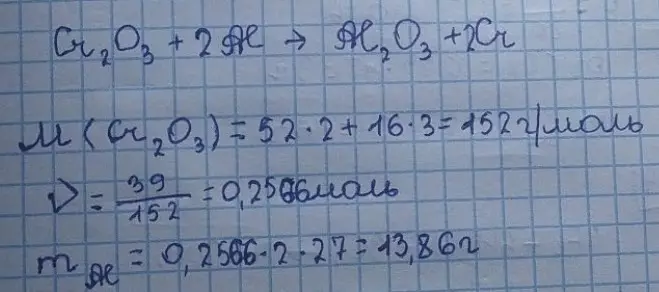 Cr₂O₃ + 2Al → Al₂O₃ + 2Cr
M(Cr₂O₃) = 52·2 + 16·3 = 152 г/моль
ν = 39/152 = 0,2566 моль
m Al = 0,2566·2·27 = 13,86 г